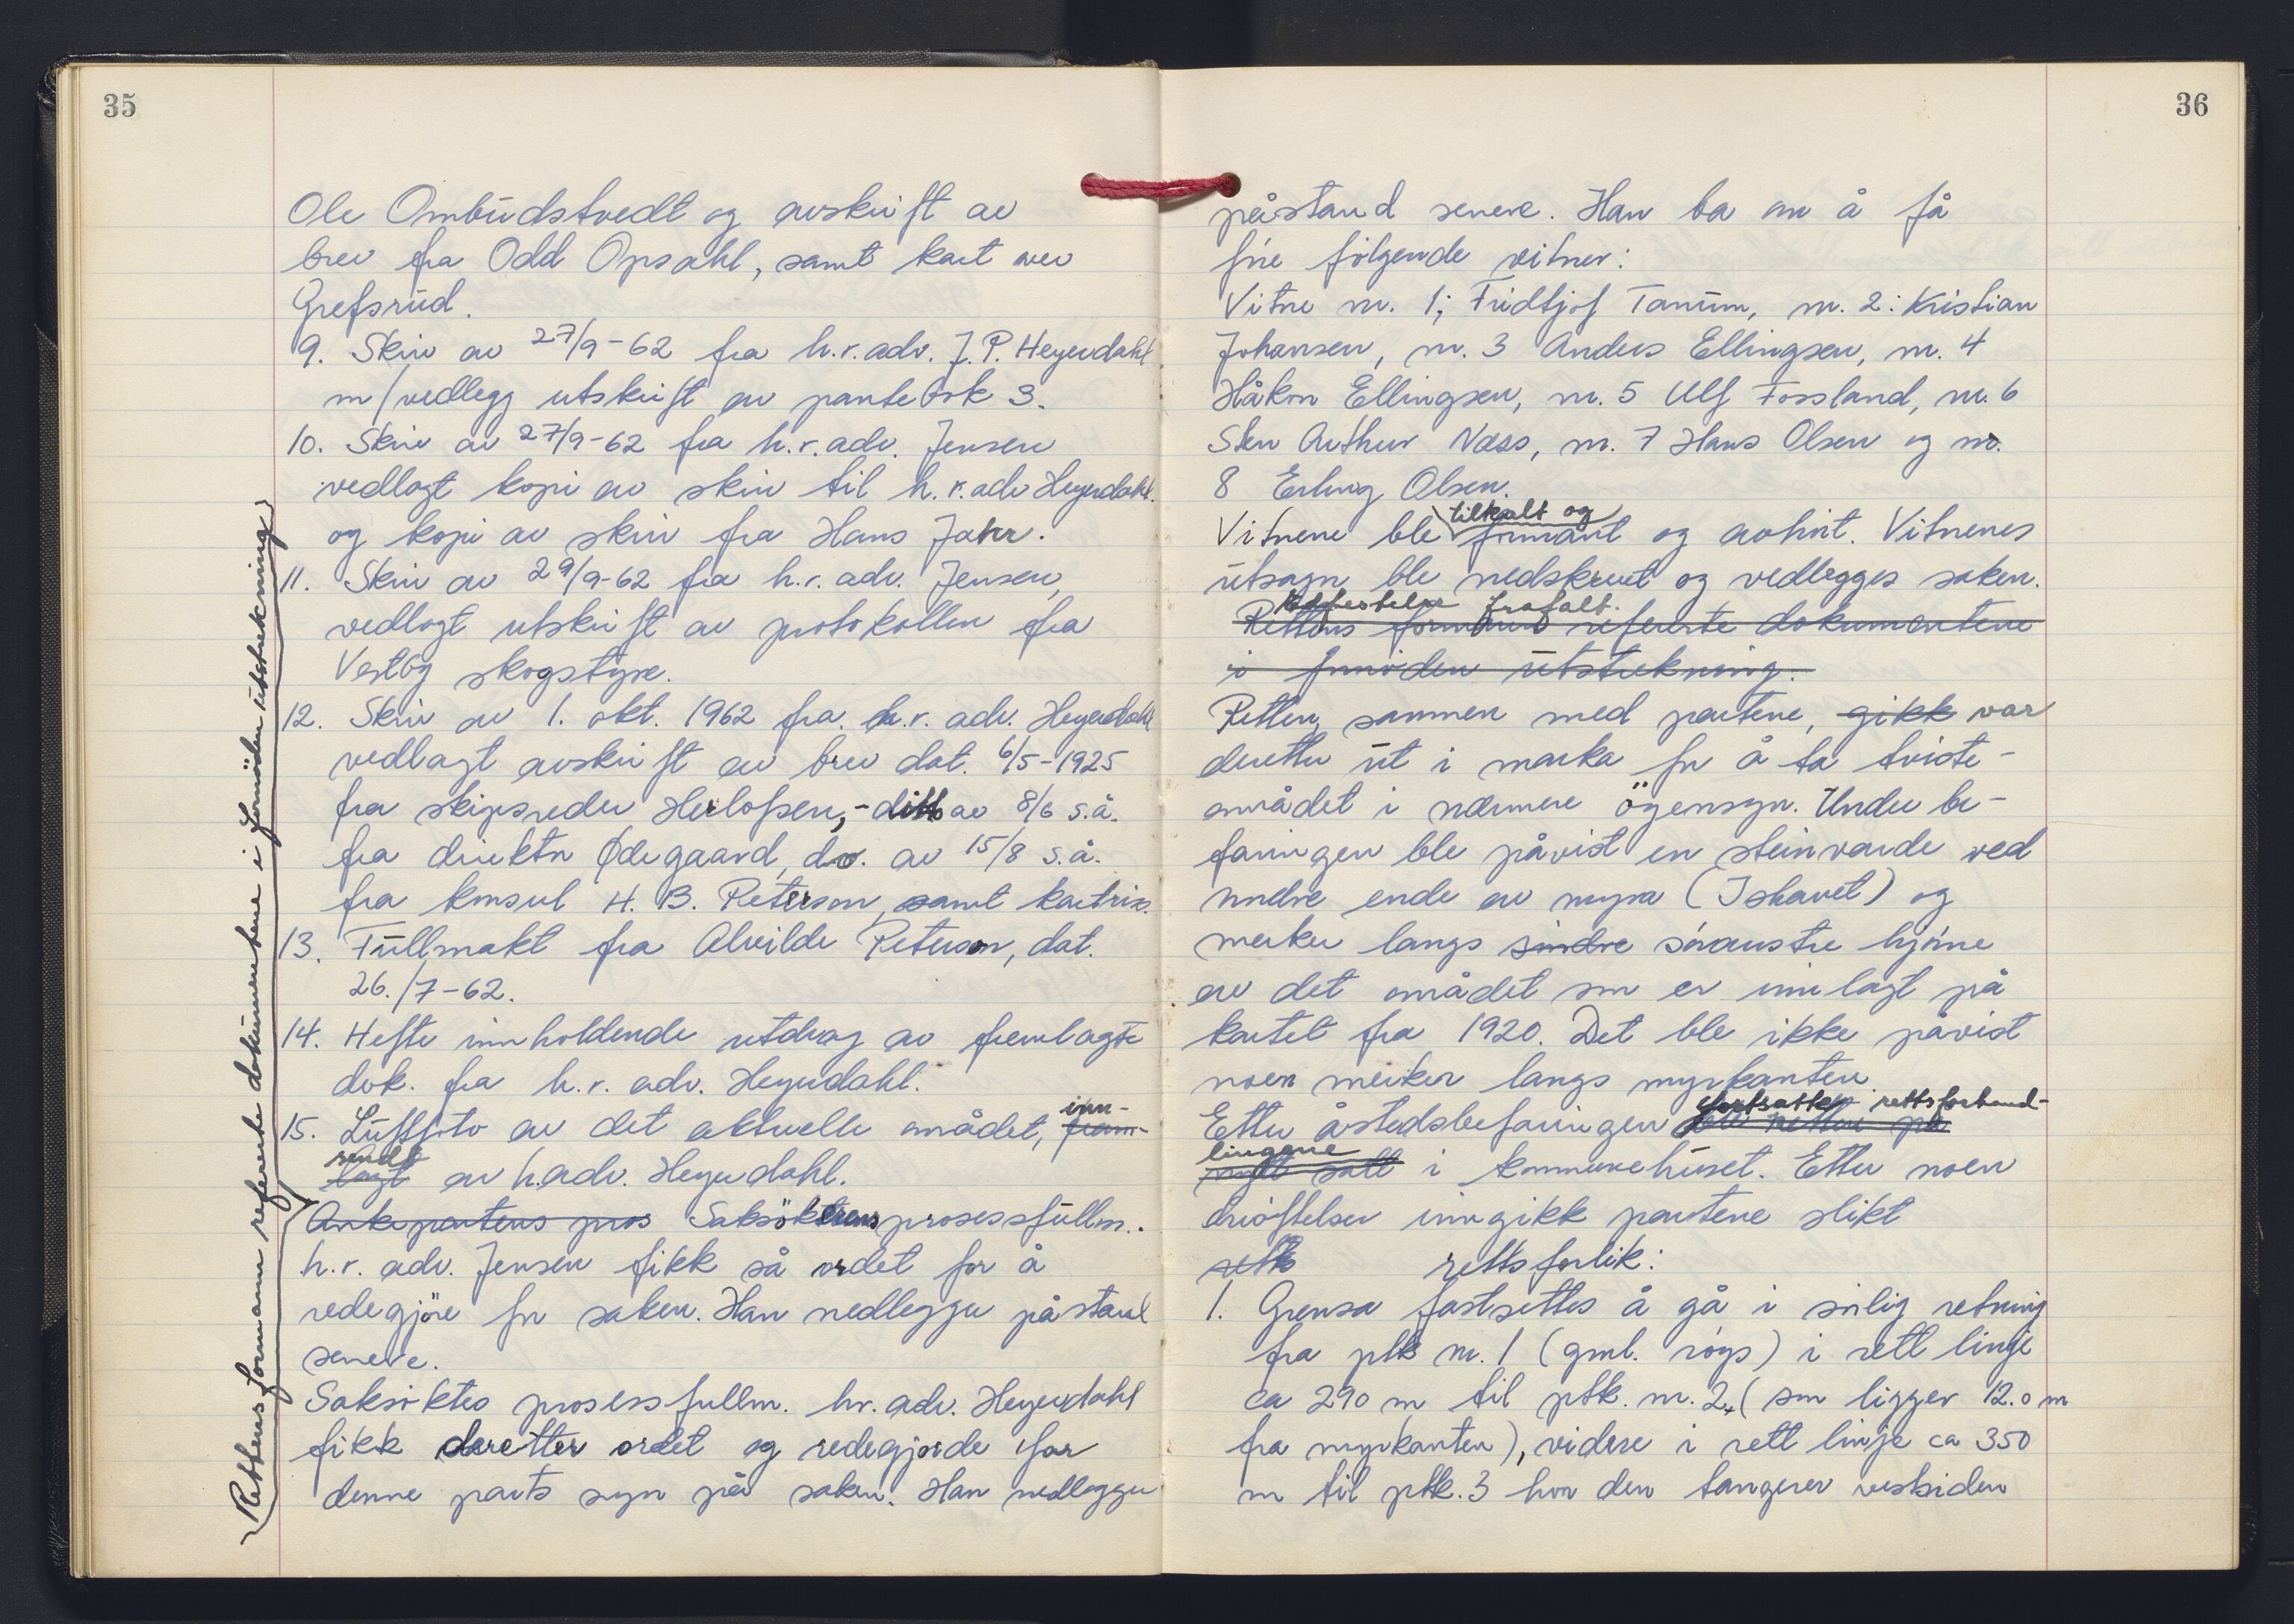 35
Ole Ombudstvedt og avskrift av
brev fra Odd Opsahl, samt kart over
Grefsrud.
9. Skriv av 27/9-62 fra h.r.adv. J.P. Heyerdahl
m/vedlegg utskrift av pantebok 3.
10. Skriv av 27/9-62 fra h.r.adv. Jensen
vedlagt kopi av skriv til h.r.adv Heyerdahl.
og kopi av skriv fra Hans Jahr.
11. Skriv av 29/9-62 fra h.r.adv. Jensen,
vedlagt utskrift av protokollen fra
Vestby skogstyre.
12. Skriv av 1. okt. 1962 fra h.r. adv. Heyerdahl
vedlagt avskrift av brev dat. 6/5-1925
fra skipsreder Herlofsen, - ditto av 8/6 s.å.
fra direktør Ødegaard, do. av 15/8 s.å.
fra konsul H. B. Peterson, samt kartriss.
13. Fullmakt fra Alvilde Peterson, dat.
26./7-62.
14. Hefte innholdende utdrag av fremlagte
dok. fra h.r. adv. Heyerdahl.
15. Luftfoto av det aktuelle området, fram- inn-
lagt sendt av h.adv. Heyerdahl.
Ankepartens pros Saksökerens prosessfullm.
h.r. adv. Jensen fikk så ordet for å
redegjöre for saken. Han nedlegger påstand
senere.
Saksöktes prosessfullm. hr. adv. Heyerdahl
fikk deretter ordet og redegjorde for
denne parts syn på saken. Han nedlegger
Rettens formann refererte dokumentene i fornöden utstrekning
36
påstand senere. Han ba om å få
före fölgende vitner:
Vitne nr. 1; Fridtjof Tanum, nr. 2: Kristian
Johansen, nr. 3 Anders Ellingsen, nr. 4
Håkon Ellingsen, nr. 5 Ulf Fossland, nr. 6
Sten Arthur Næss, nr. 7 Hans Olsen og nr.
8 Erling Olsen.
Vitnene ble tilkalt og formant og avhört. Vitnenes
utsagn ble nedskrevet og vedlegges saken.
Vedtestelse frafalt.
Rettens formann refererte dokumentene
i fornöden utstrekning.
Retten, sammen med partene, gikk var
deretter ut i marka for å ta tviste-
området i nærmere öyensyn. Under be-
faringen ble påvist en steinvarde ved
nordre ende av myra (Ishavet) og
merker langs söndre söraustre hjörne
av det området som er innlagt på
kartet fra 1920. Det ble ikke påvist
noen merker langs myrkanten.
Etter åstedsbefaringen ble retten på fortsatte rettsforhand-
nytt satt lingene i kommunehuset. Etter noen
dröftelser inngikk partene slikt
retts rettsforlik:
1. Grensa fastsettes å gå i sörlig retning
fra ptk nr. 1 (gml. röys) i rett linje
ca 290 m til ptk. nr. 2, (som ligger 12.0 m
fra myrkanten), videre i rett linje ca 350
m til ptk. 3 hvor den tangerer vestsiden